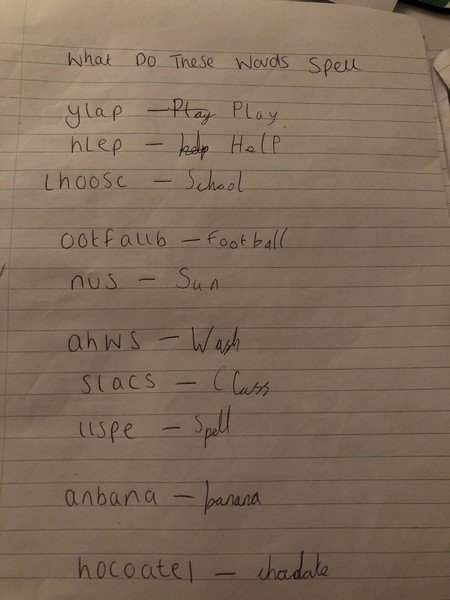 What Do These Words Spell
ylap – Play Play
hlep – help Help
lhoosc – School
ootfallb – Football
nus – Sun
ahws – Wash
slacs – Class
llspe – Spell
anbana – banana
hocoatel –